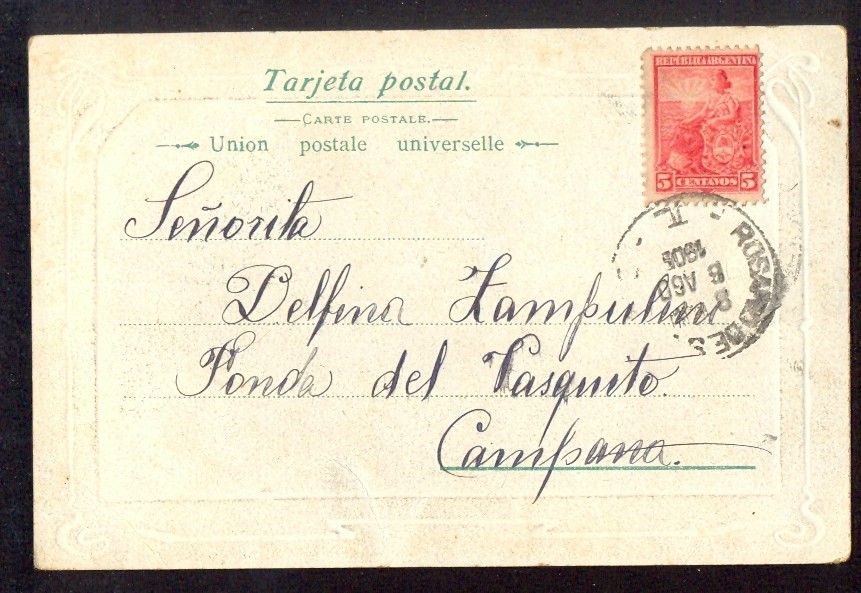 Tarjeta postal.
CARTE POSTALE.
Union postale universelle
REPUBLICA ARGENTINA
5 CENTAVOS 5
Señorita
Delfina Zampulini
Fonda del Vasquito.
Campana.
ROSARIO DE S.
8 AGO
1905